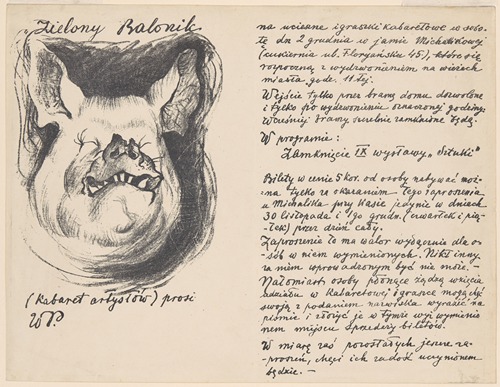 Zielony Balonik
(Kabaret artystów) prosi
WP.
na ucieszne igraszki Kabaretowe w sobo-
tę dn 2 grudnia w jamie Michalikowej
(cukiernia ul. Floryańska 45), które się
rozpoczną z wydzwonieniem na wieżach
miasta godz. 11tej.
Wejście tylko przez bramę domu dozwolone
i tylko po wydzwonieniu oznaczonej godziny.
Wcześniej bramy szczelnie zamknięte będą.
W programie:
Zamknięcie IX wystawy „Sztuki"
Bilety w cenie 5 kor. od osoby nabywać moż-
na tylko za okazaniem tego zaproszenia
u Michalika przy kasie jedynie w dniach
30 listopada i 1go grudn. (czwartek i pią-
tek) przez dzień cały.
Zaproszenie to ma walor wyłącznie dla o-
sób w niem wymienionych. Nikt inny
za niem wprowadzonym być nie może. —
Natomiast osoby płonące żądzą wzięcia
udziału w Kabaretowej igraszce mogą
swoją z podaniem nazwiska wyrazić na
piśmie i złożyć je w tymże wyż wymienio-
nem miejscu sprzedaży biletów.
W miarę zaś pozostałych jeszcze za-
proszeń, chęci ich zadość uczynionem
będzie. —